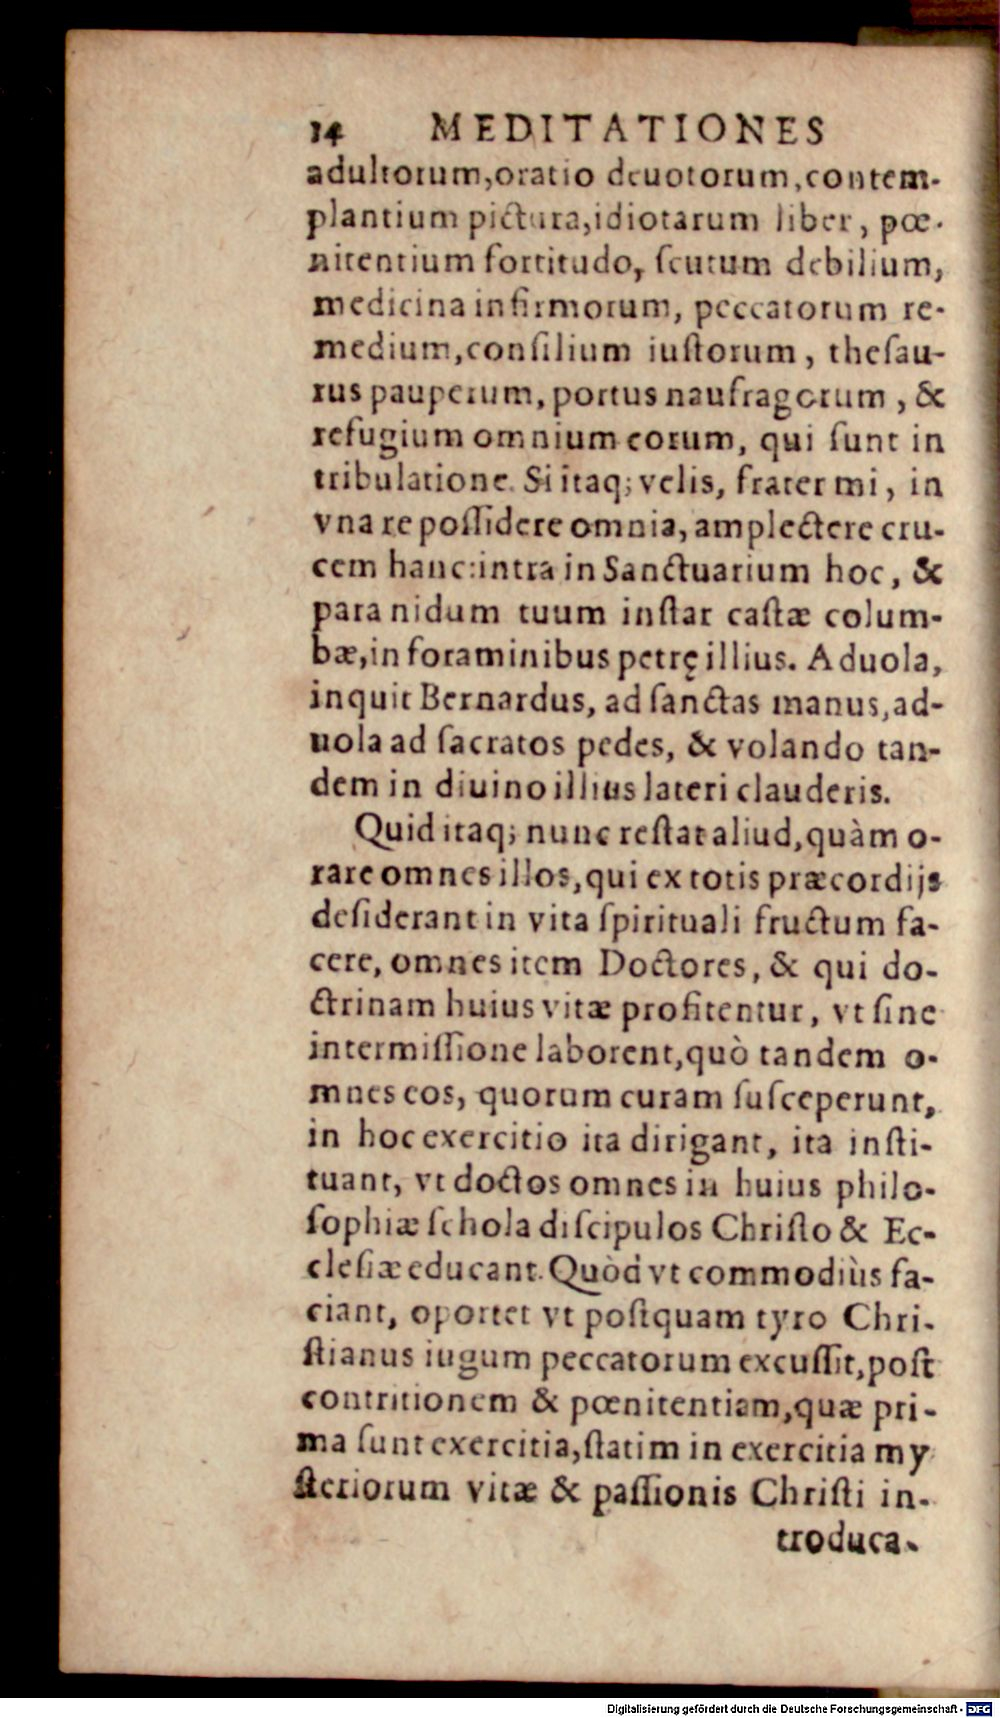 14 MEDITATIONES
adultorum, oratio deuotorum, contem-
plantium pictura, idiotarum liber, pœ-
nitentium fortitudo, ſcutum debilium,
medicina infirmorum, peccatorum re-
medium, conſilium iuſtorum, theſau-
rus pauperum, portus naufragorum, &
refugium omnium eorum, qui ſunt in
tribulatione. Si itaq; velis, frater mi, in
vna re poſſidere omnia, amplectere cru-
cem hanc: intra in Sanctuarium hoc, &
para nidum tuum inſtar caſtæ colum-
bæ, in foraminibus petrę illius. Aduola,
inquit Bernardus, ad ſanctas manus, ad-
uola ad ſacratos pedes, & volando tan-
dem in diuino illius lateri clauderis.
Quid itaq; nunc reſtat aliud, quàm o-
rare omnes illos, qui ex totis præcordijs
deſiderant in vita ſpirituali fructum fa-
cere, omnes item Doctores, & qui do-
ctrinam huius vitæ profitentur, vt ſine
intermiſſione laborent, quò tandem o-
mnes eos, quorum curam ſuſceperunt,
in hoc exercitio ita dirigant, ita inſti-
tuant, vt doctos omnes in huius philo-
ſophiæ ſchola diſcipulos Chriſto & Ec-
cleſiæ educant. Quòd vt commodiùs fa-
ciant, oportet vt poſtquam tyro Chri-
ſtianus iugum peccatorum excuſſit, poſt
contritionem & pœnitentiam, quæ pri-
ma ſunt exercitia, ſtatim in exercitia my
ſteriorum vitæ & paſſionis Chriſti in-
troduca-
Digitalisierung gefördert durch die Deutsche Forschungsgemeinschaft - DFG